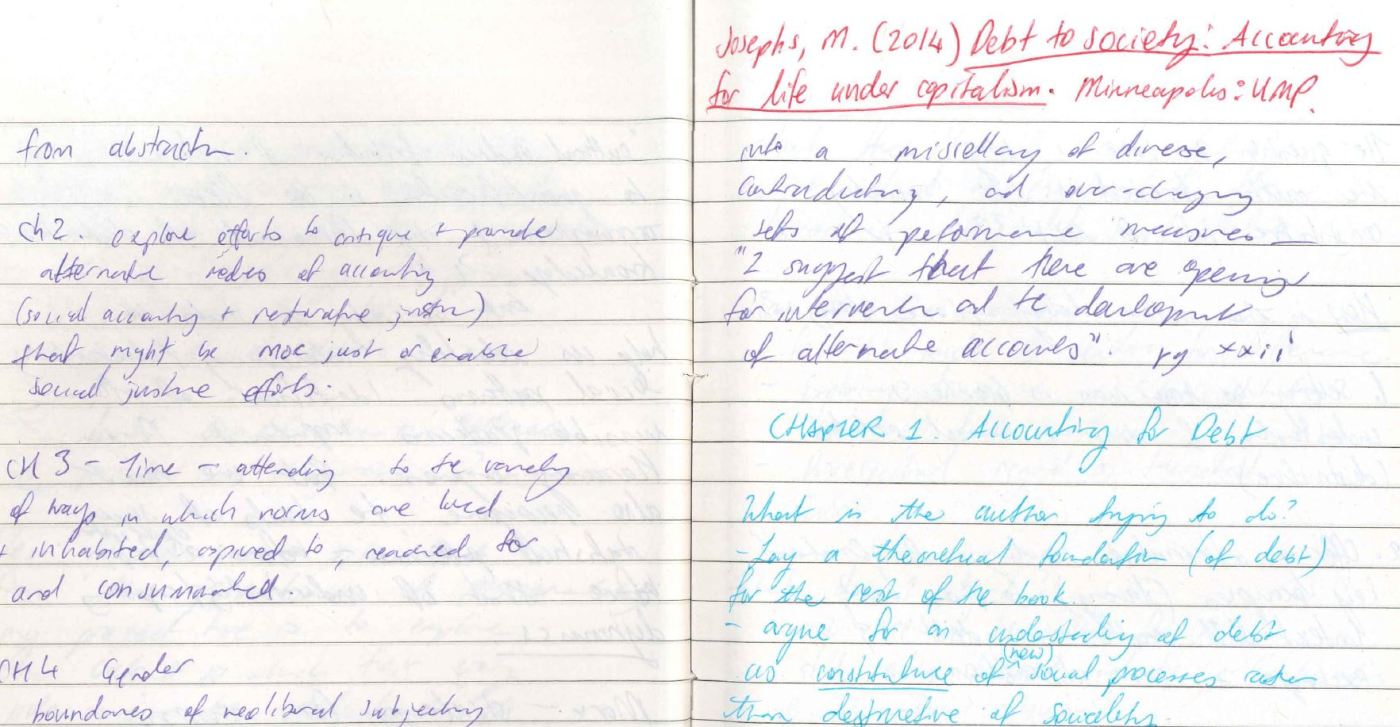 from abstraction.
Ch2. explore efforts to critique + promote
alternate modes of accounting
(social accounting + restorative justice)
that might be more just or enable
social justice efforts.
CH 3 - Time - attending to the variety
of ways in which norms are lived
+ inhabited, aspired to, reached for
and consummated.
CH 4 Gender
boundaries of neoliberal subjectivity
Josephs, M. (2014) Debt to Society: Accounting
for life under capitalism. Minneapolis: UMP.
into a miscellany of diverse,
contradictory, and ever-changing
sets of performance measures —
"I suggest that there are openings
for intervention and the development
of alternate accounts". pg xxii
CHAPTER 1. Accounting for Debt
What is the author trying to do?
- Lay a theoretical foundation (of debt)
for the rest of the book.
- argue for an understanding of debt
as constitutive of (new) social processes rather
than destructive of sociality.